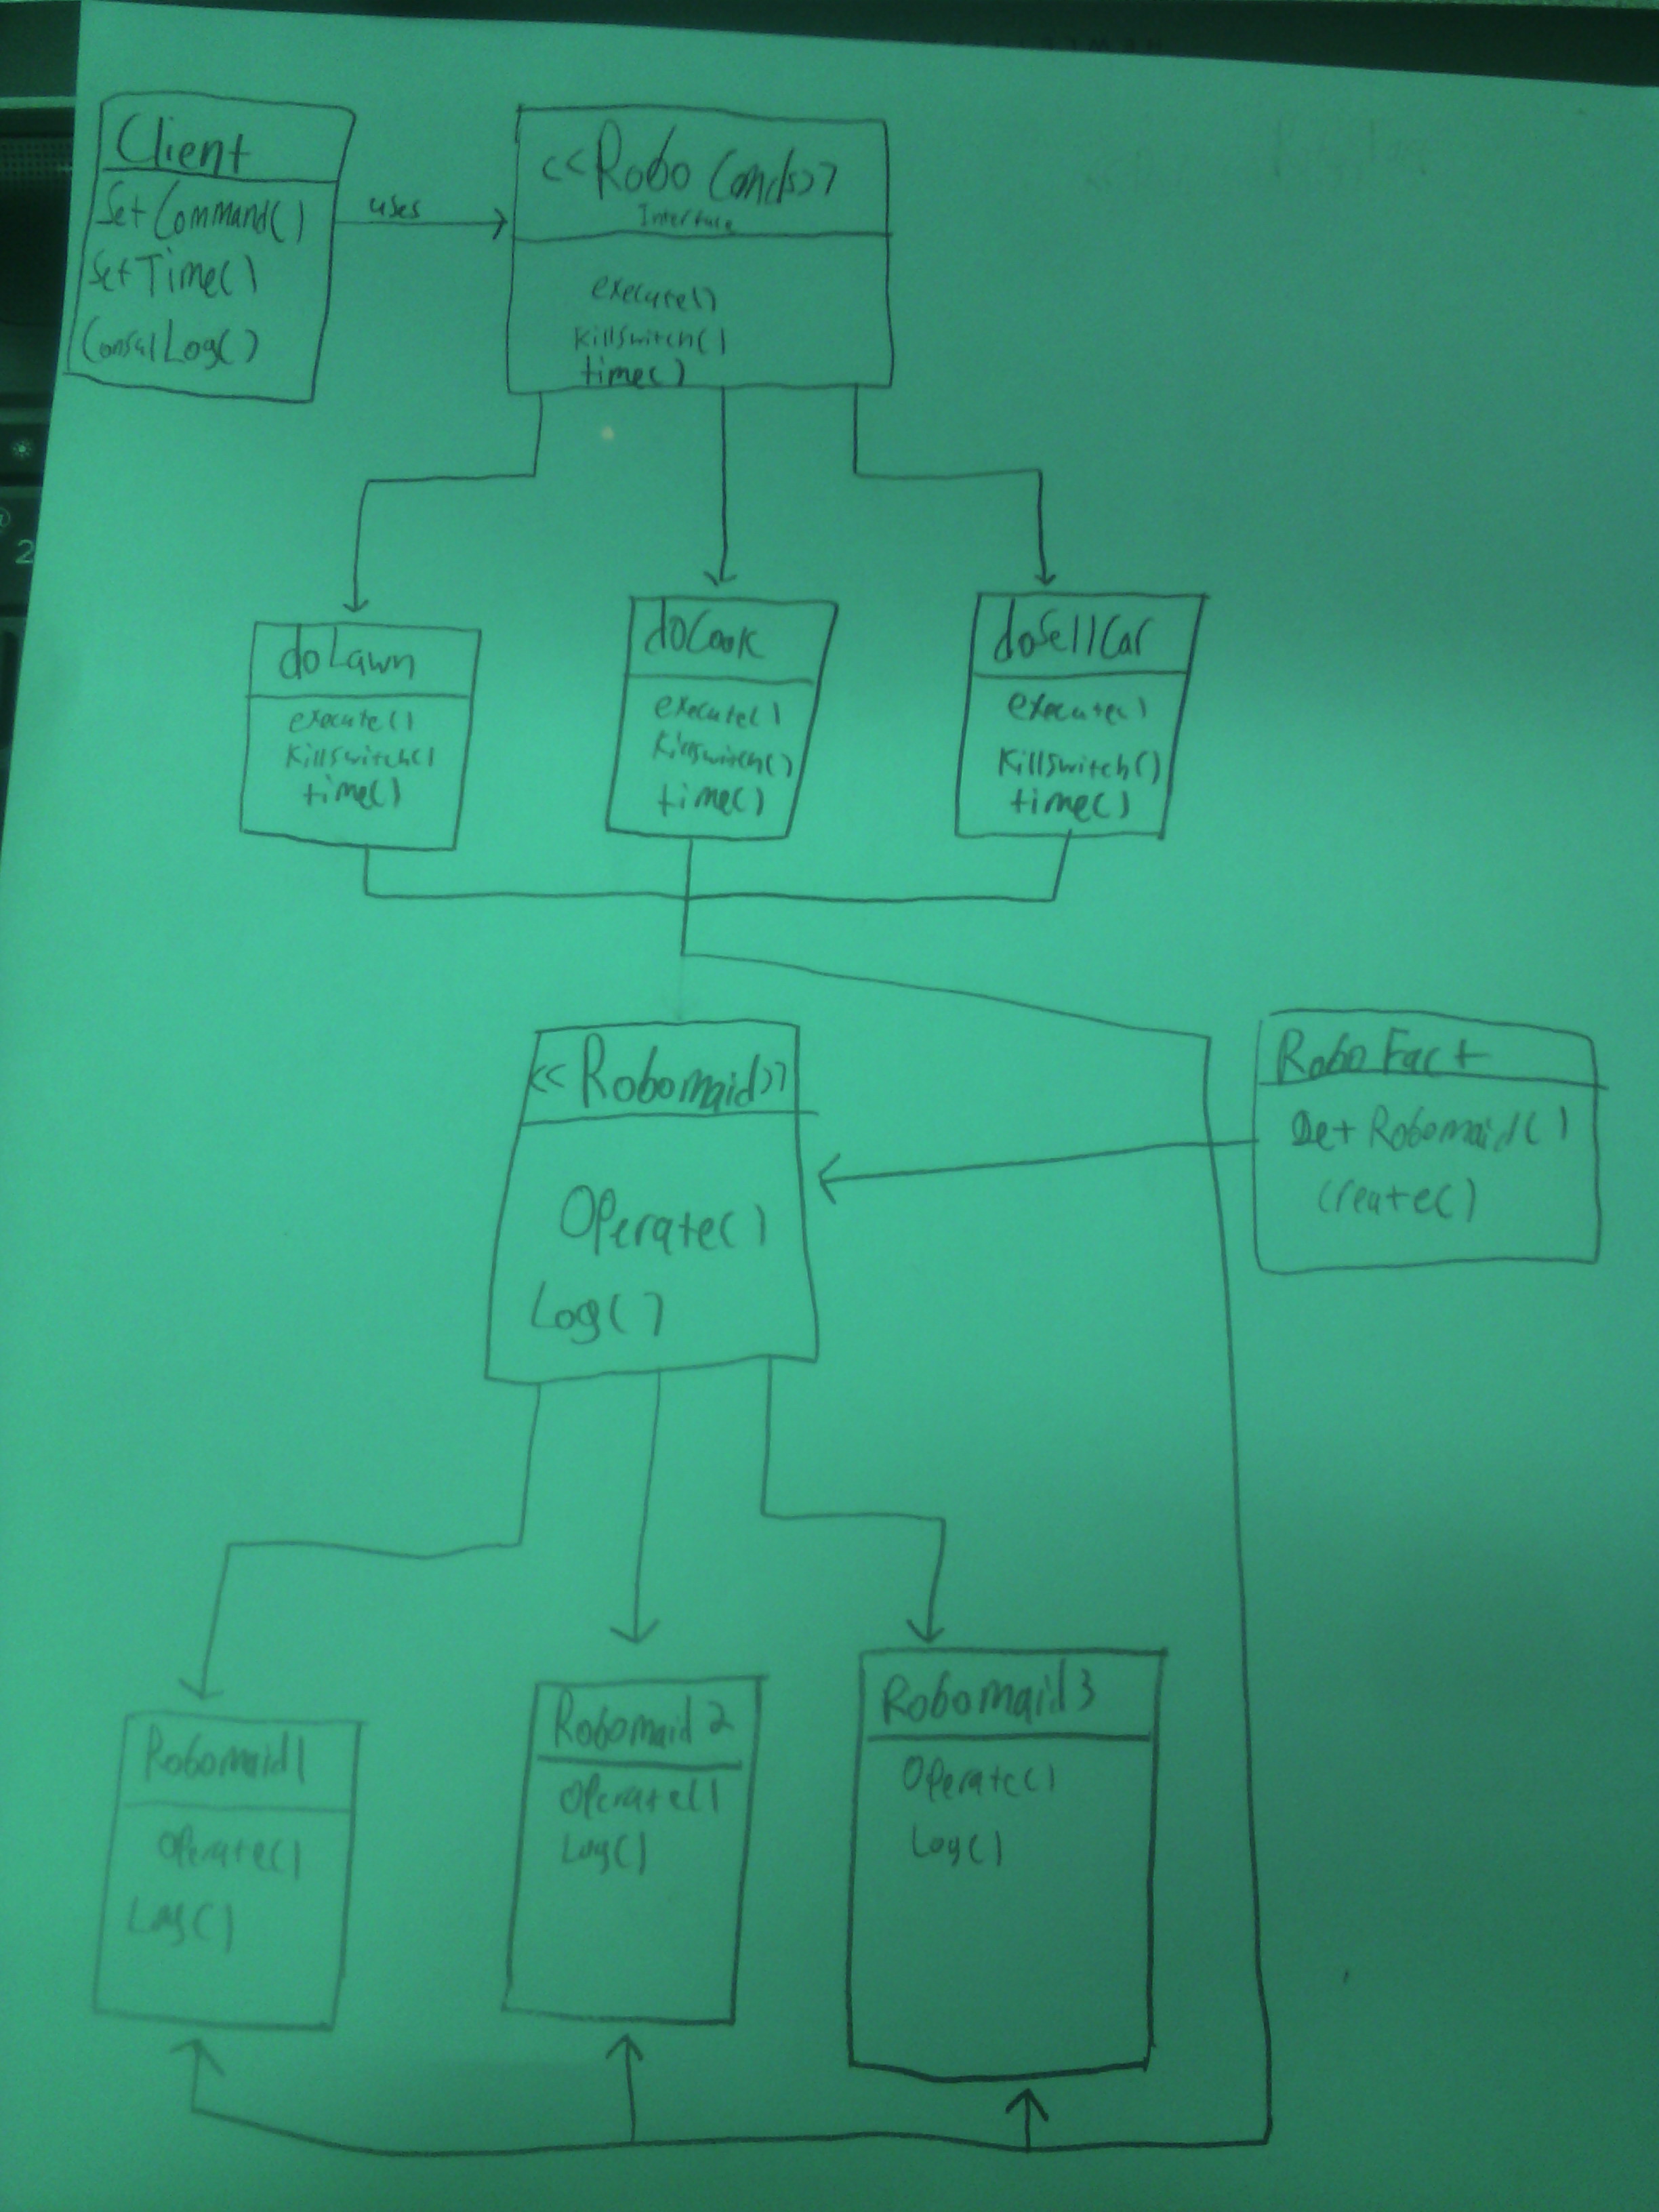 Client
SetCommand()
SetTime()
uses
<<Robo Cmds>>
Interface
execute()
KillSwitch()
time()
doLawn
execute()
KillSwitch()
time()
doCook
execute()
KillSwitch()
time()
doSellCar
execute()
KillSwitch()
time()
<<Robomaid>>
Operate()
Log()
Robo Fact
Robomaid()
Create()
Robomaid1
Operate()
Log()
Robomaid 2
Operate()
Log()
Robomaid 3
Operate()
Log()
2